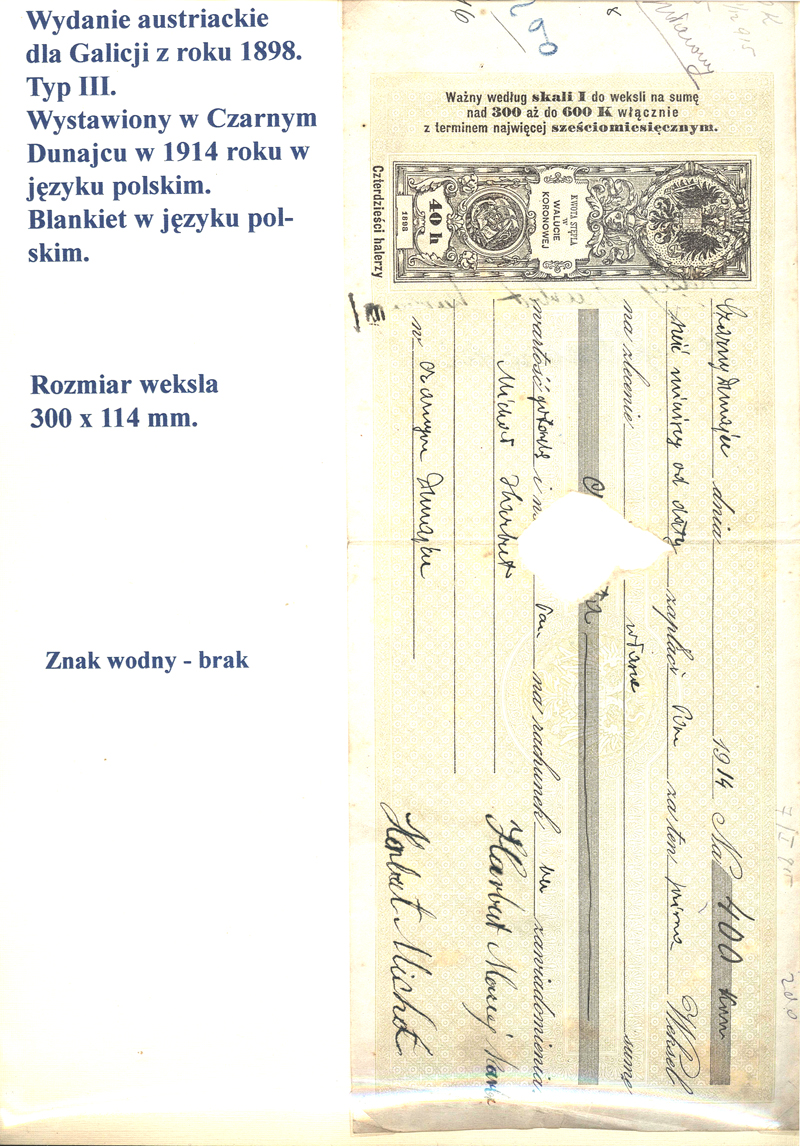 Wydanie austriackie
dla Galicji z roku 1898.
Typ III.
Wystawiony w Czarnym
Dunajcu w 1914 roku w
języku polskim.
Blankiet w języku pol-
skim.
Rozmiar weksla
300 x 114 mm.
Znak wodny - brak
16
200
Ważny według skali I do weksli na sumę
nad 300 aż do 600 K włącznie
z terminem najwięcej sześciomiesięcznym.
Czterdzieści halerzy
1898
40 h
KWOTA STĘPLA
W
WALUCIE
KORONOWEJ
Czarny Dunajec dnia 1914 Na 400 Kor
sześć miesięcy od daty zapłaci Pan za ten prima Weksel
na zlecenie własne sumę
wartość gotowką i Pan na rachunek bez zawiadomienia.
Michał Harbut Harbut Maciej
w Czarnym Dunajcu Harbut Michał
200